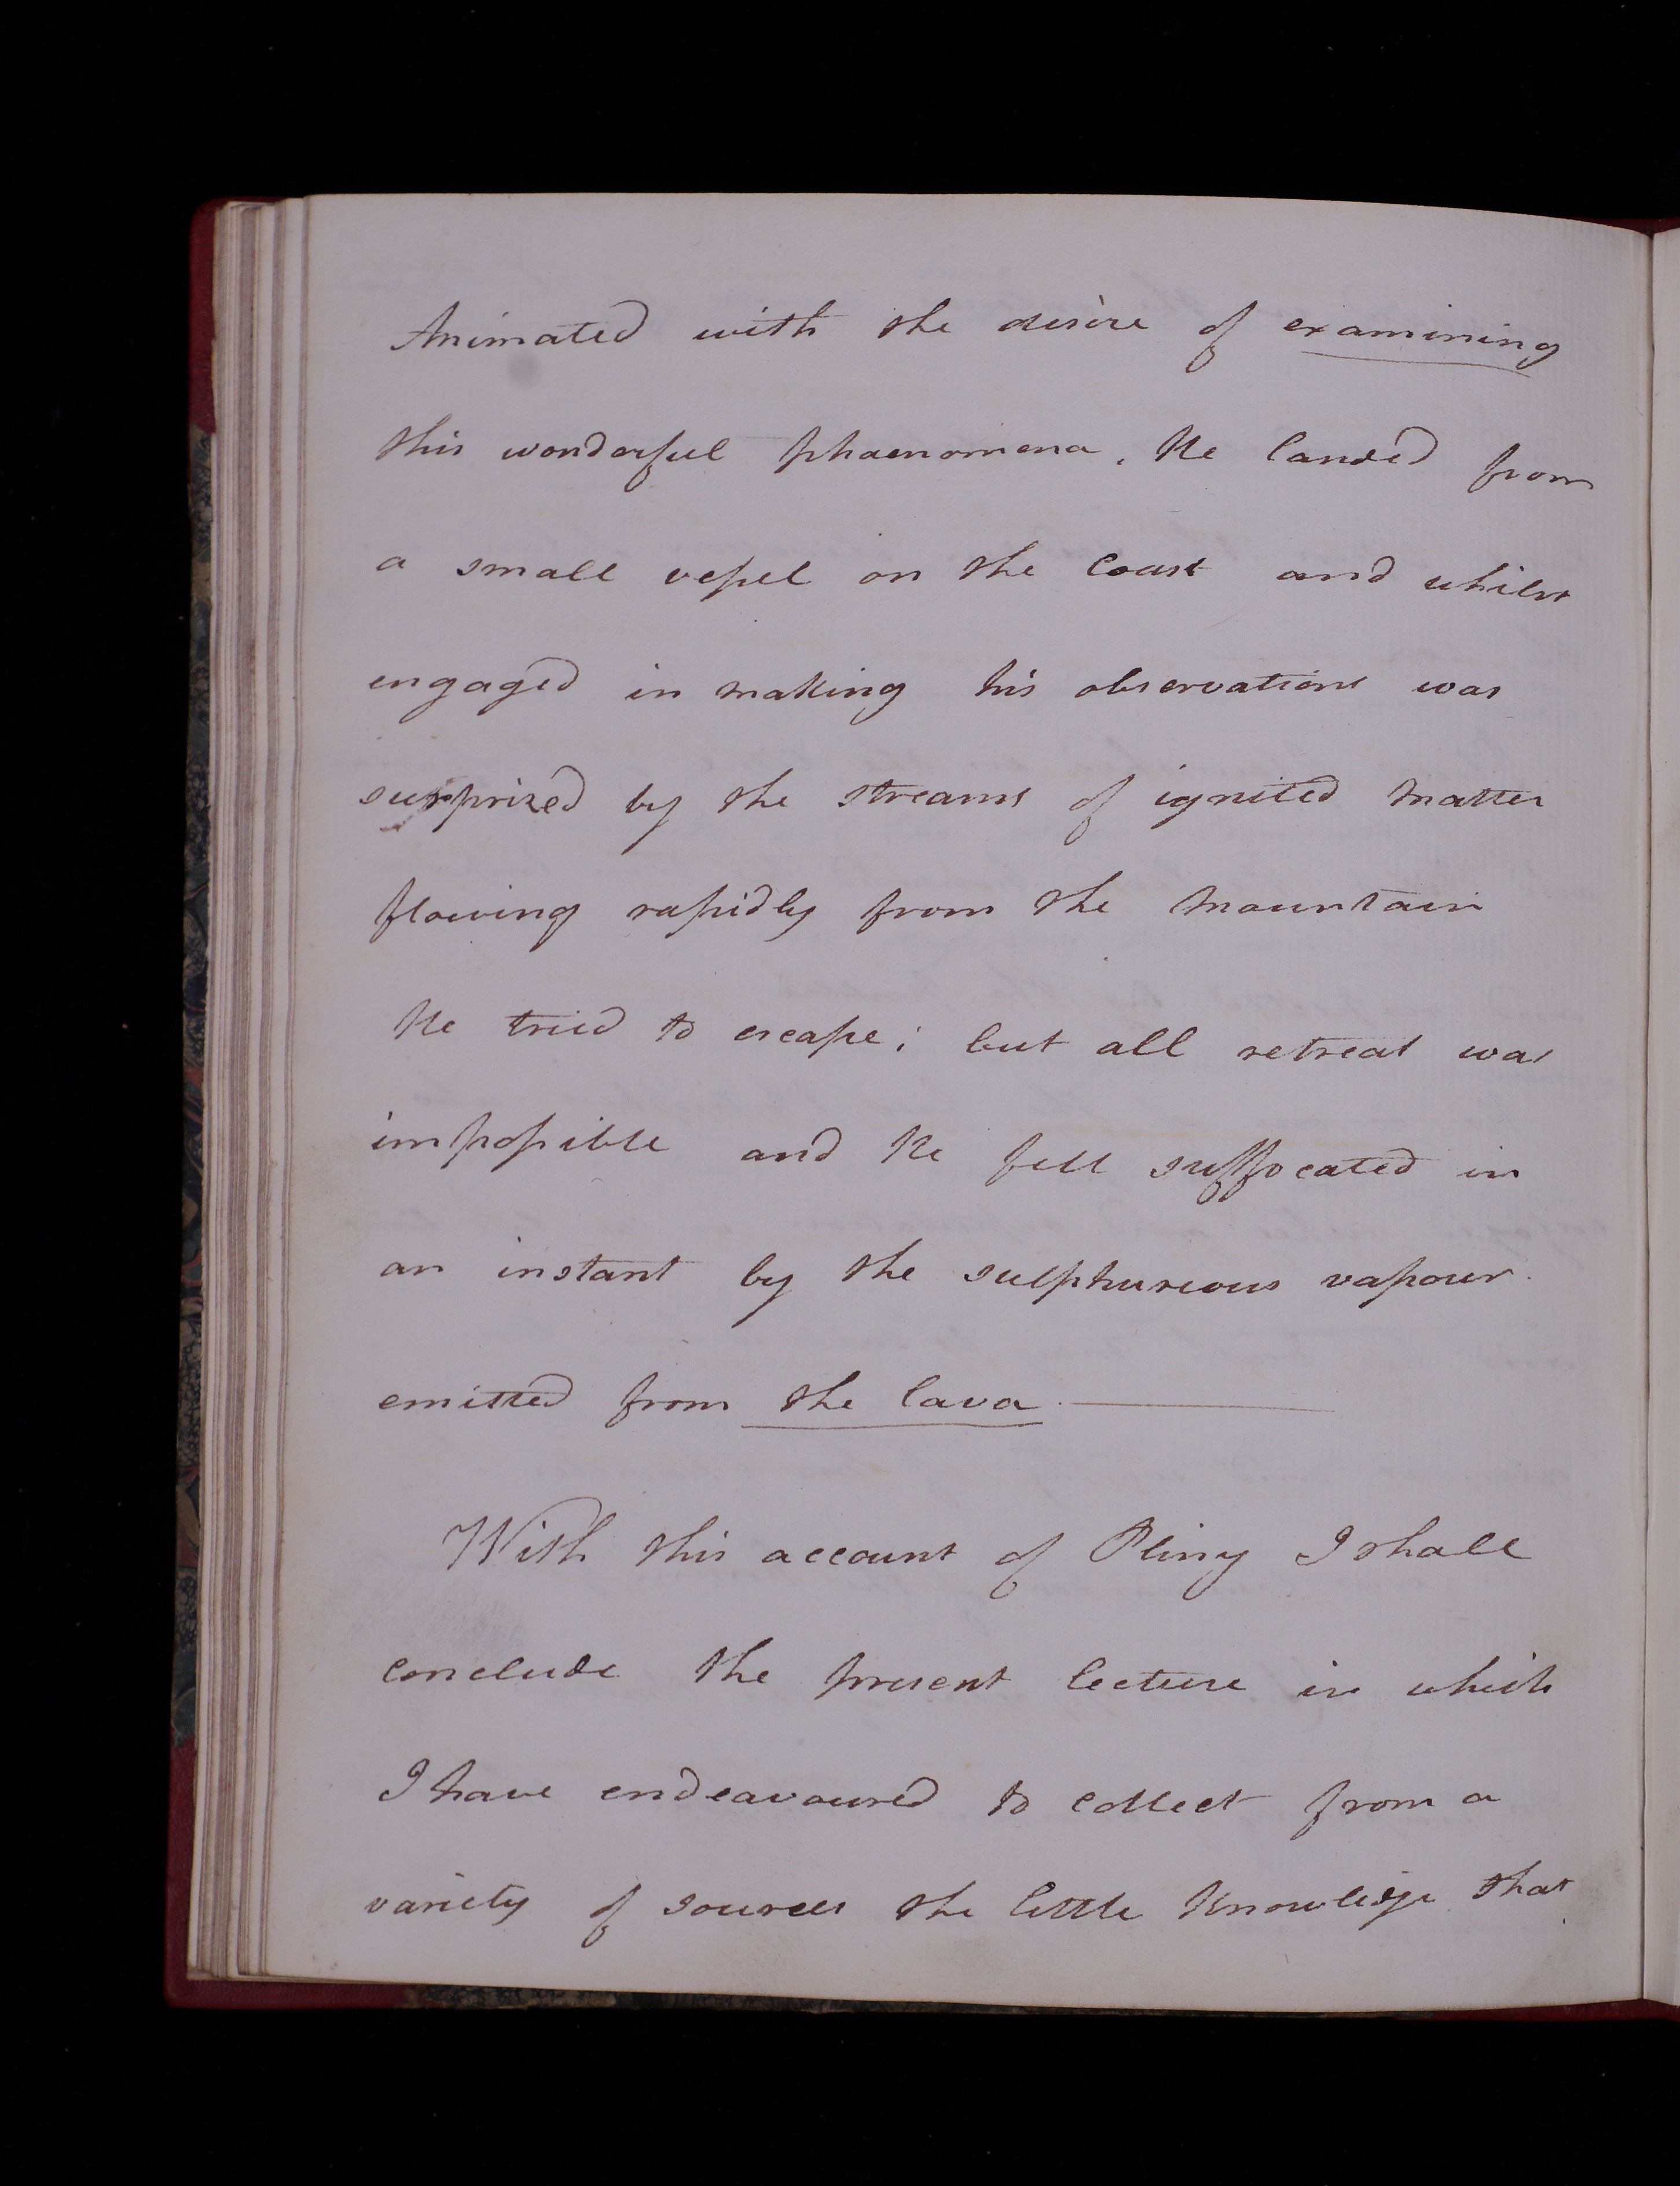 Animated with the desire of examining
this wonderful phaenomena. He landed from
a small vessel on the Coast and whilst
engaged in making his observations was
surprized by the streams of ignited matter
flowing rapidly from the mountain
He tried to escape; but all retreat was
impossible and he fell suffocated in
an instant by the sulphureous vapour
emitted from the lava. —
With this account of Pliny I shall
conclude the present lecture in which
I have endeavoured to collect from a
variety of sources the little knowledge that